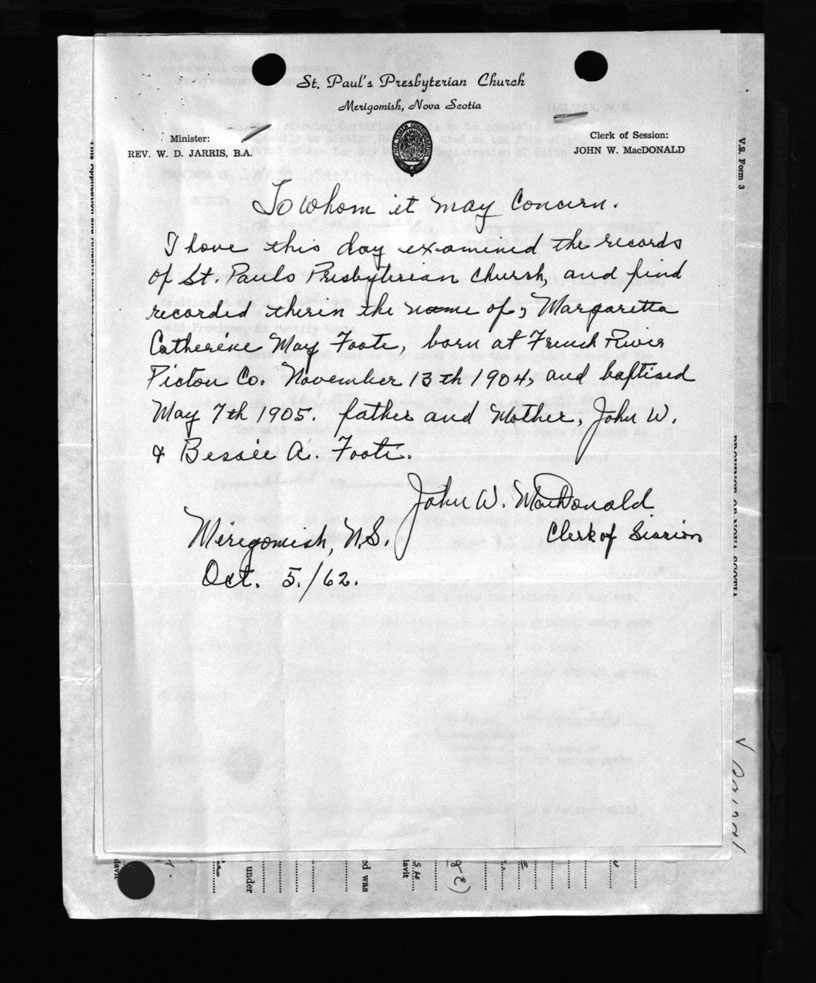 St. Paul's Presbyterian Church
Merigomish, Nova Scotia
Minister:
REV. W. D. JARRIS, B.A.
Clerk of Session:
JOHN W. MacDONALD
V.S. Form 3
To Whom it may Concern.
I have this day examined the records
of St. Pauls Presbyterian Church, and find
recorded therein the name of, Margaretta
Catherene May Foote, born at French River
Pictou Co. November 13th 1904, and baptised
May 7th 1905. father and Mother, John W.
& Bessie A. Foote.
John W. MacDonald
Clerk of Session
Merigomish, N.S.
Oct. 5./62.
under